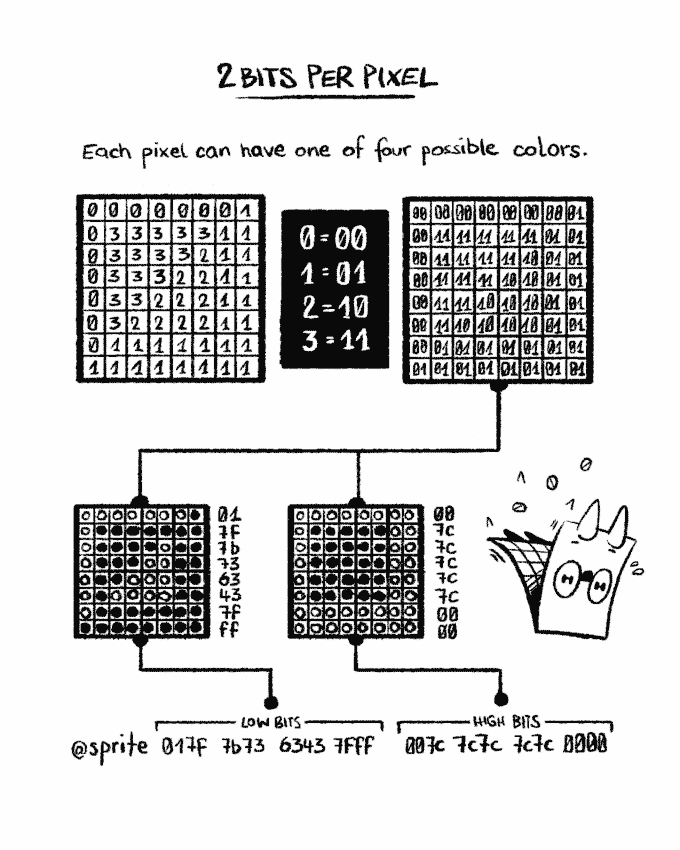 2 BITS PER PIXEL
Each pixel can have one of four possible colors.
0 0 0 0 0 0 0 1
0 3 3 3 3 3 1 1
0 3 3 3 3 2 1 1
0 3 3 3 2 2 1 1
0 3 3 2 2 2 1 1
0 3 2 2 2 2 1 1
0 1 1 1 1 1 1 1
1 1 1 1 1 1 1 1
0=00
1=01
2=10
3=11
00 00 00 00 00 00 00 01
00 11 11 11 11 11 01 01
00 11 11 11 11 10 01 01
00 11 11 11 10 10 01 01
00 11 11 10 10 10 01 01
00 11 10 10 10 10 01 01
00 01 01 01 01 01 01 01
01 01 01 01 01 01 01 01
01
7f
7b
73
63
43
7f
ff
00
7c
7c
7c
7c
7c
00
00
LOW BITS
HIGH BITS
@sprite 017f 7b73 6343 7fff 007c 7c7c 7c7c 0000